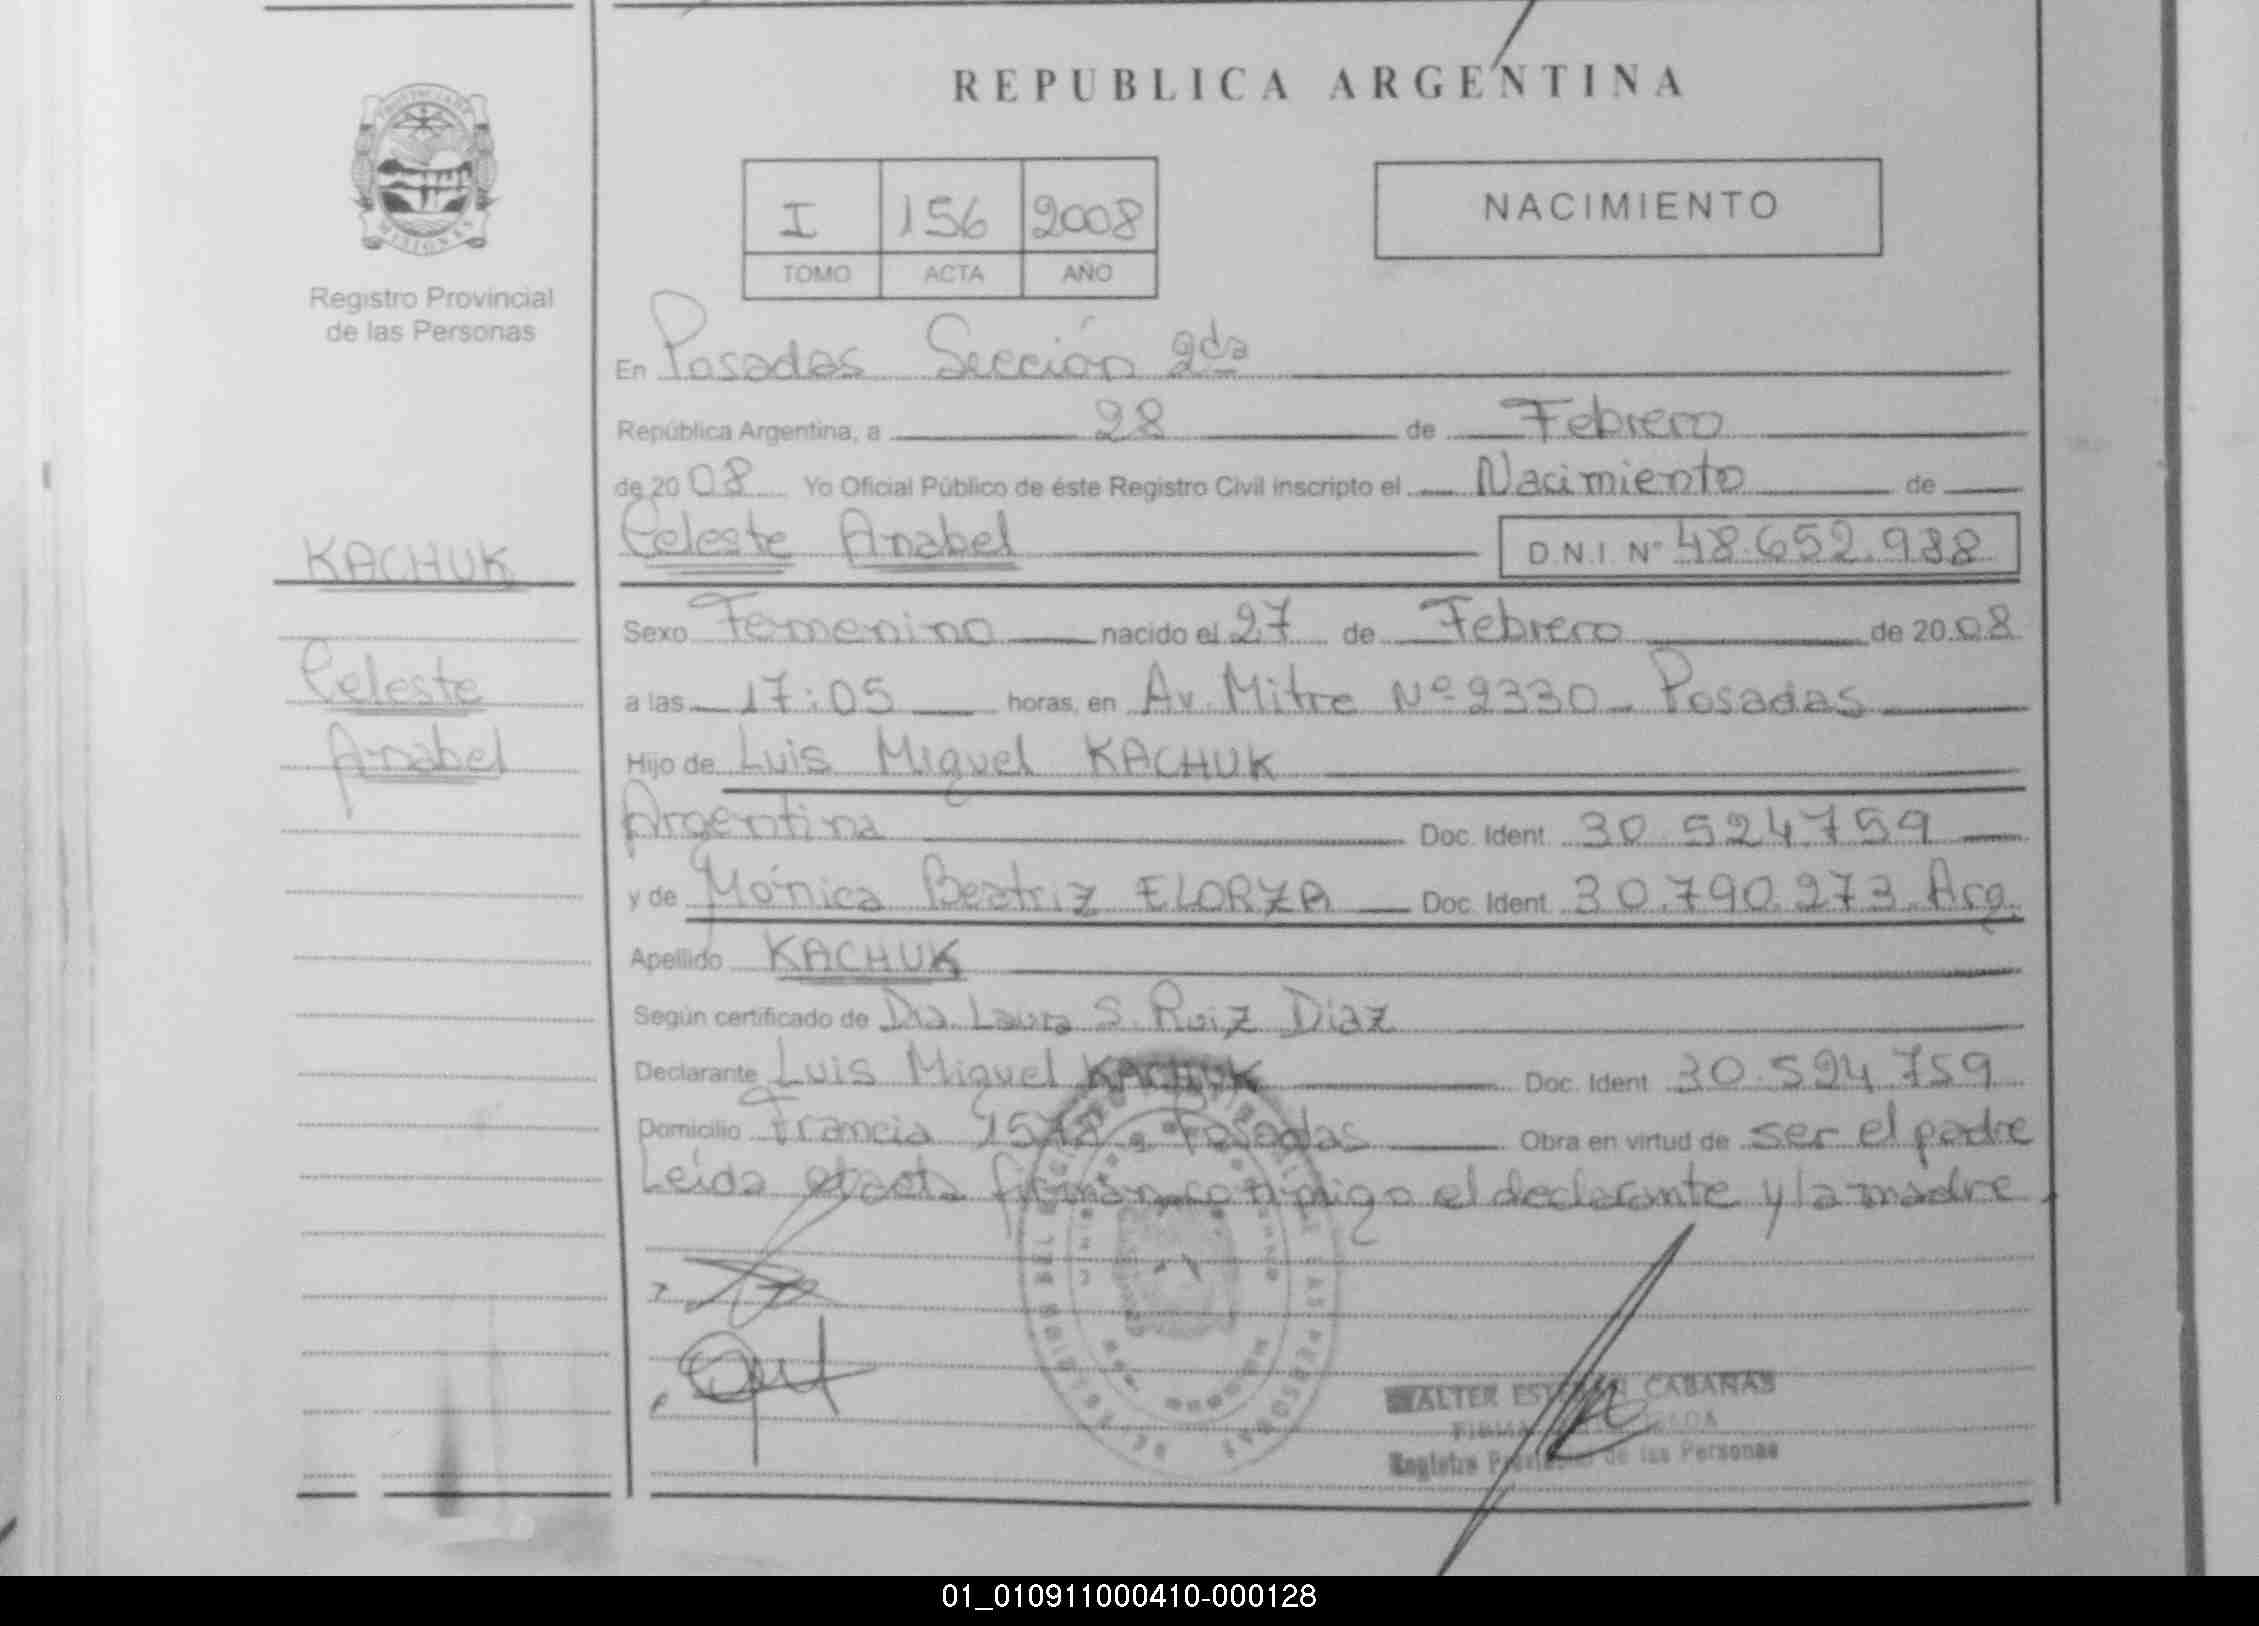 REPUBLICA ARGENTINA
PROVINCIA DE
MISIONES
Registro Provincial
de las Personas
I 156 2008
TOMO ACTA AÑO
NACIMIENTO
En Posadas Sección 2da
República Argentina, a 28 de Febrero
de 2008 Yo Oficial Público de éste Registro Civil inscripto el Nacimiento de
KACHUK
Celeste Anabel D.N.I. Nº 48.652.988
Sexo Femenino nacido el 27 de Febrero de 2008
Celeste
a las 17:05 horas, en Av. Mitre Nº 2330 - Posadas
Anabel
Hijo de Luis Miguel KACHUK
Argentina Doc. Ident. 30.524.759
y de Mónica Beatriz ELORZA Doc. Ident. 30.790.273 Arg.
Apellido KACHUK
Según certificado de Dra. Laura S. Ruiz Diaz
Declarante Luis Miguel KACHUK Doc. Ident 30.524.759
Domicilio Francia Posadas Obra en virtud de ser el padre
Leída el acta firman conmigo el declarante y la madre
WALTER CABAÑAS
FIRMA
Registro de las Personas
01_010911000410-000128